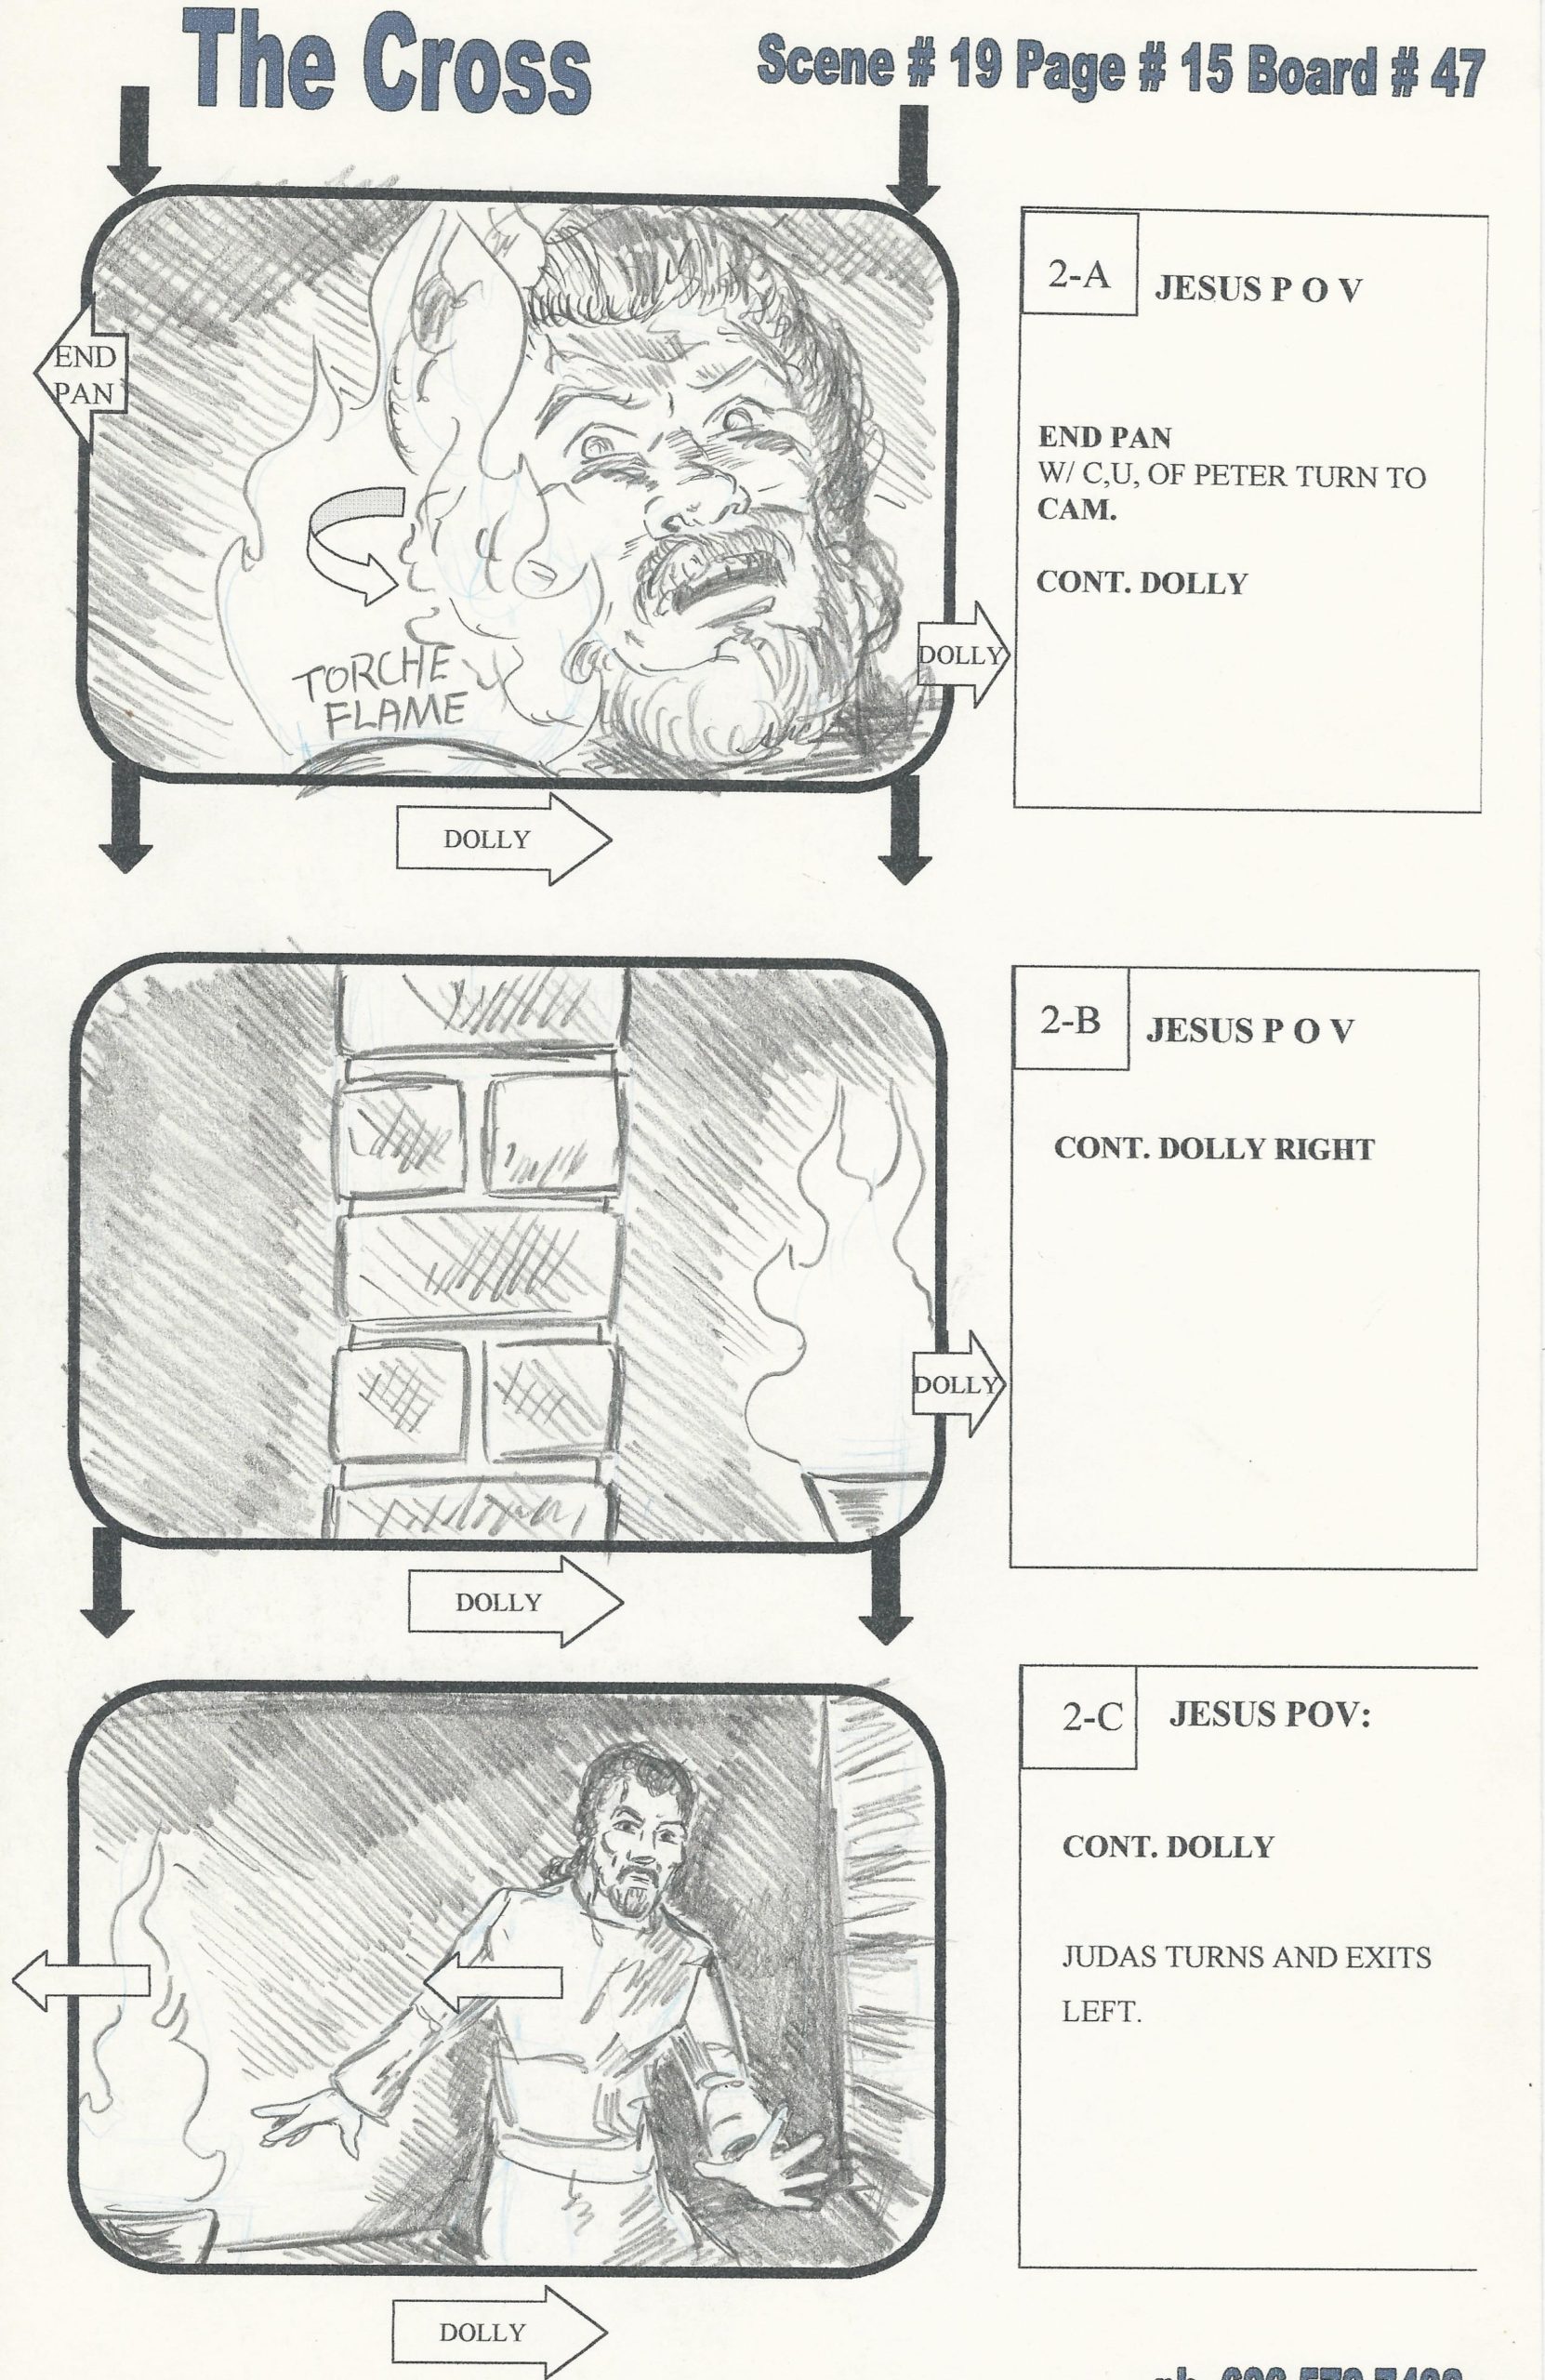 The Cross
Scene # 19 Page # 15 Board # 47
END
PAN
TORCHE
FLAME
DOLLY
DOLLY
2-A
JESUS P O V
END PAN
W/ C,U, OF PETER TURN TO
CAM.
CONT. DOLLY
DOLLY
DOLLY
2-B
JESUS P O V
CONT. DOLLY RIGHT
DOLLY
2-C
JESUS POV:
CONT. DOLLY
JUDAS TURNS AND EXITS
LEFT.